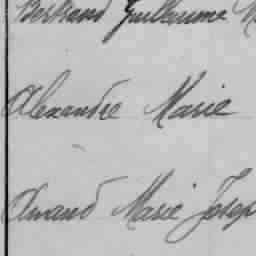 Bertrand Guillaume M
Alexandre Marie
Amand Marie Josep